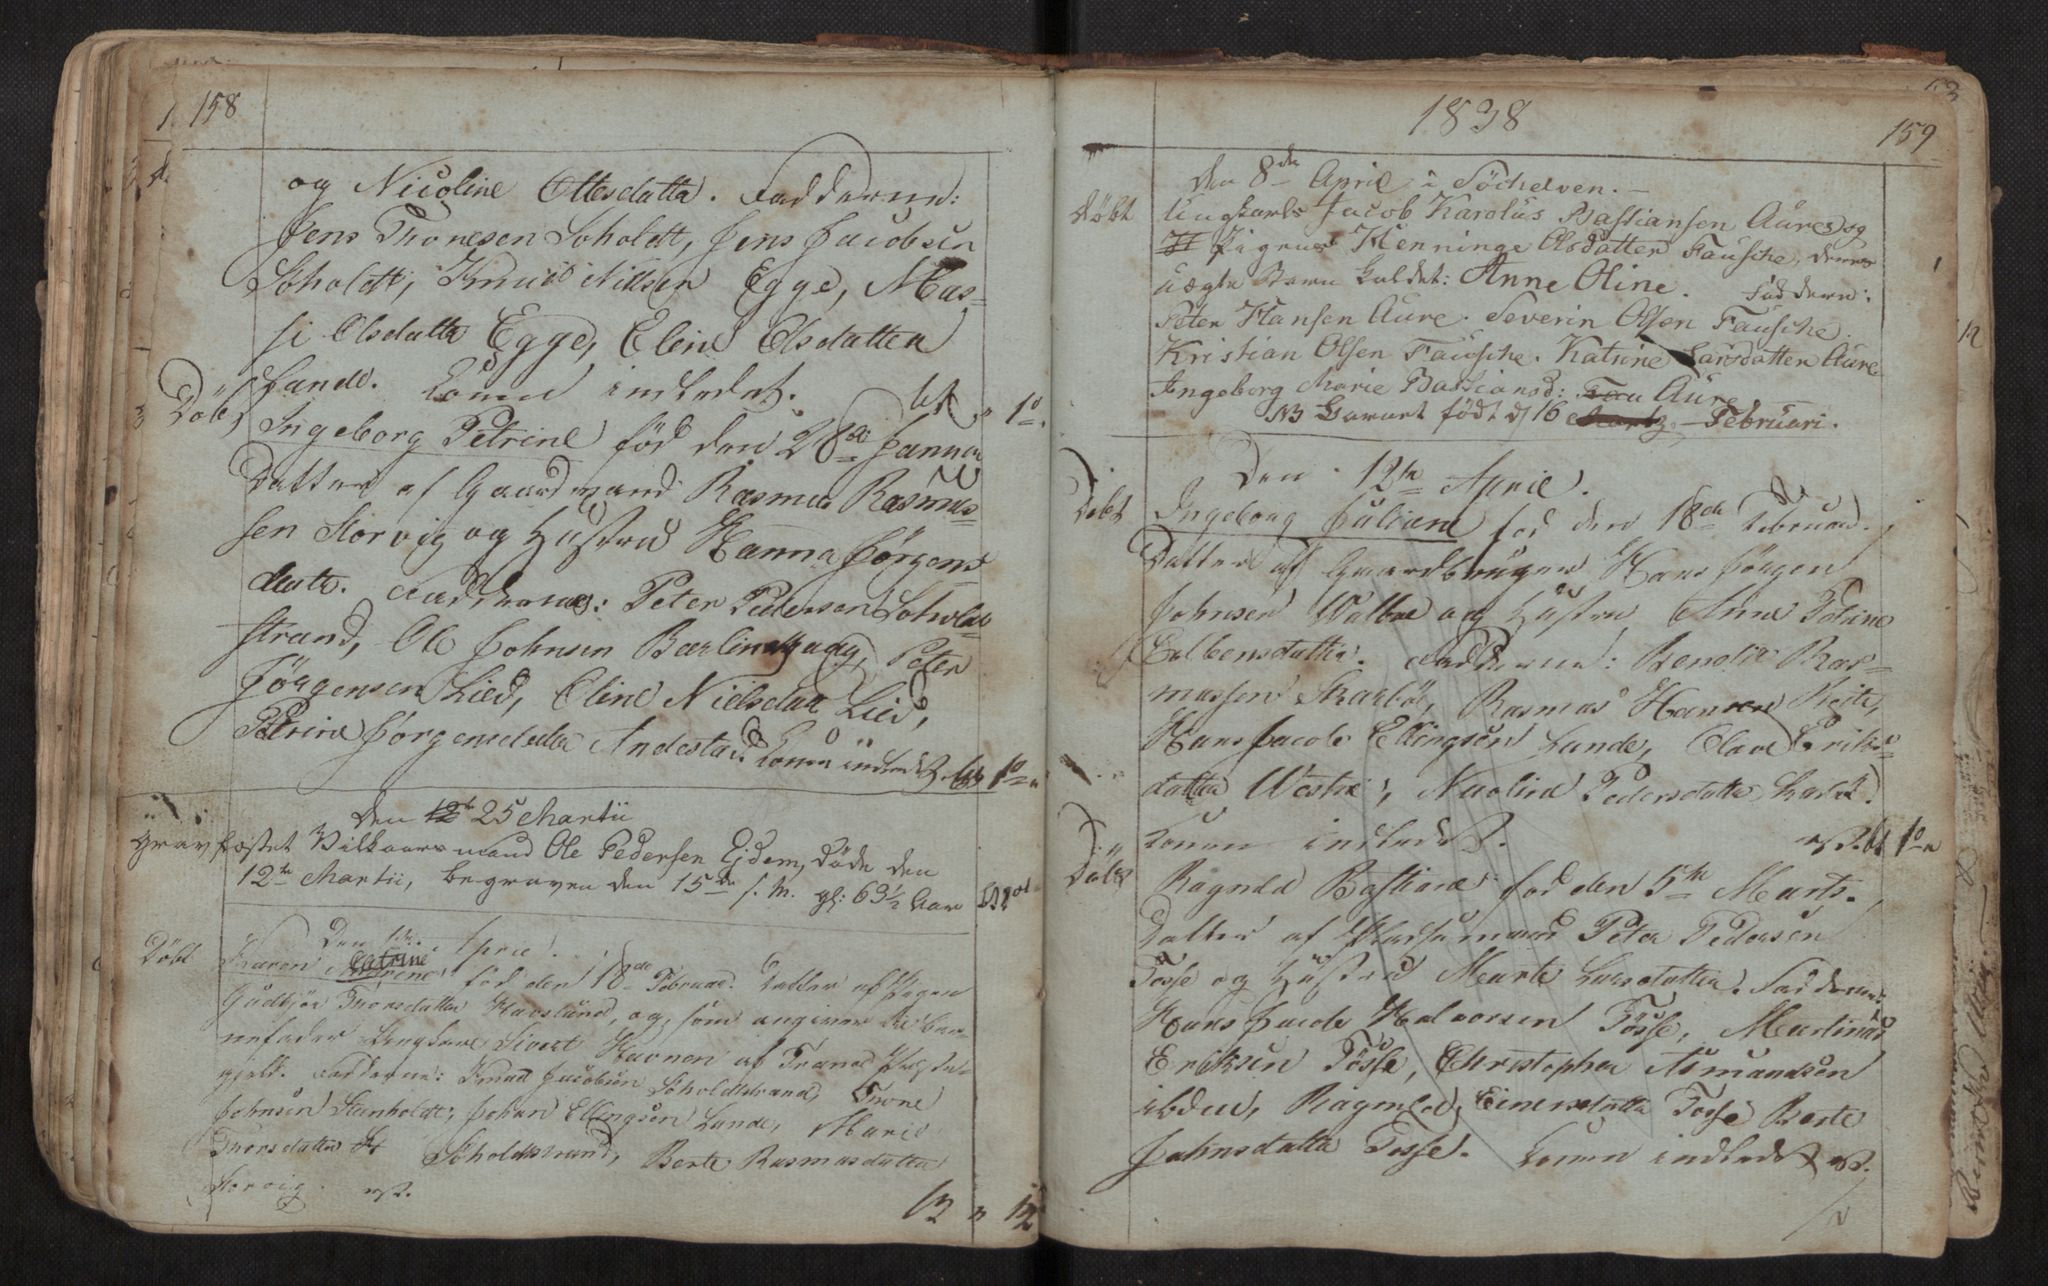 158
og Nicoline Ottesdatter. Fadderne:
Jens Tronesen Soholdt, Jens Jacobsen
Soholdt, Knud Nilsen Egge, Mas-
si Olsdatter Egge, Eline Olsdatter
Lande. Konen indledet.
Døbt Ingeborg Petrine fød den 28de Januar
Datter af Gaardmand Rasmus Rasmus-
sen Storvig og Hustru Hanna Jørgens-
datter. Fadderne: Peter Pedersen Soholdt-
strand, Ole Johnsen Berlinghaug, Peter
Jørgensen Lied, Eline Nielsdatter Lied,
Petrine Jørgensdatter Andestad. Konen indledt.
Den 12te 25 Martii
Gravfæstet Vilkaarsmand Ole Pedersen Ejdem, døde den
12te Martii, begraven den 15de s. M. gl: 63 1/2 Aar
Den 1te April.
Døbt Karen Catrine Andrine fød den 18de Februar. Datter af Pigen
Gudbjør Tronsdatter Havslund, og som angiven Bar-
nefader Ungkarl Sivert Havnen af Præste-
gjeld. Fadderne: Knud Jacobsen Soholdtstrand, Trone
Johnsen Stenholdt, Johan Ellingsen Lande, Marie
Tronsdatter St Soholdtstrand, Berte Rasmusdatter
Storvig.
12 " 12
1838
159
den 8de April i Södhelven.
Døbt Ungkarl Jacob Karolus Bastiansen Aure, og
H Pigen Henninge Olsdatter Fausche, deres
uægte Barn kaldet: Anne Oline. Faddere:
Peter Hansen Aure. Severin Olsen Fausche.
Kristian Olsen Fausche. Katrine Larsdatter Aure
Ingeborg Marie Bastiansd: Fau Aure
NB Barnet født d 16 Martz Februari.
Den 12te April.
Døbt Ingeborg Juliane fød den 18de Februar.
Datter af Gaardbruger Hans Jörgen
Johnsen Walboe og Hustru Anne Petrine
Eelbensdatter. Fadderne: Bendix Ras-
mussen Skarbö, Rasmus Hansen Reite,
Hans Jacob Ellingsön Lande, Olave Eriks-
datter Westre, Nicoline Pedersdatter
Konen indledt.
Døbt Ragnild Bastiane fød den 5te Marts.
Datter af Pladsemand Peter Pedersen
Tøsse og Hustru Marte Larsdatter. Fadderne:
Hans Jacob Halvorsen Tösse, Martinus
Eriksen Tösse, Christopher Asmundsøn
ibden, Ragnild Einersdatter Tøsse Berte
Johnsdatter Tosse. Konen indledt